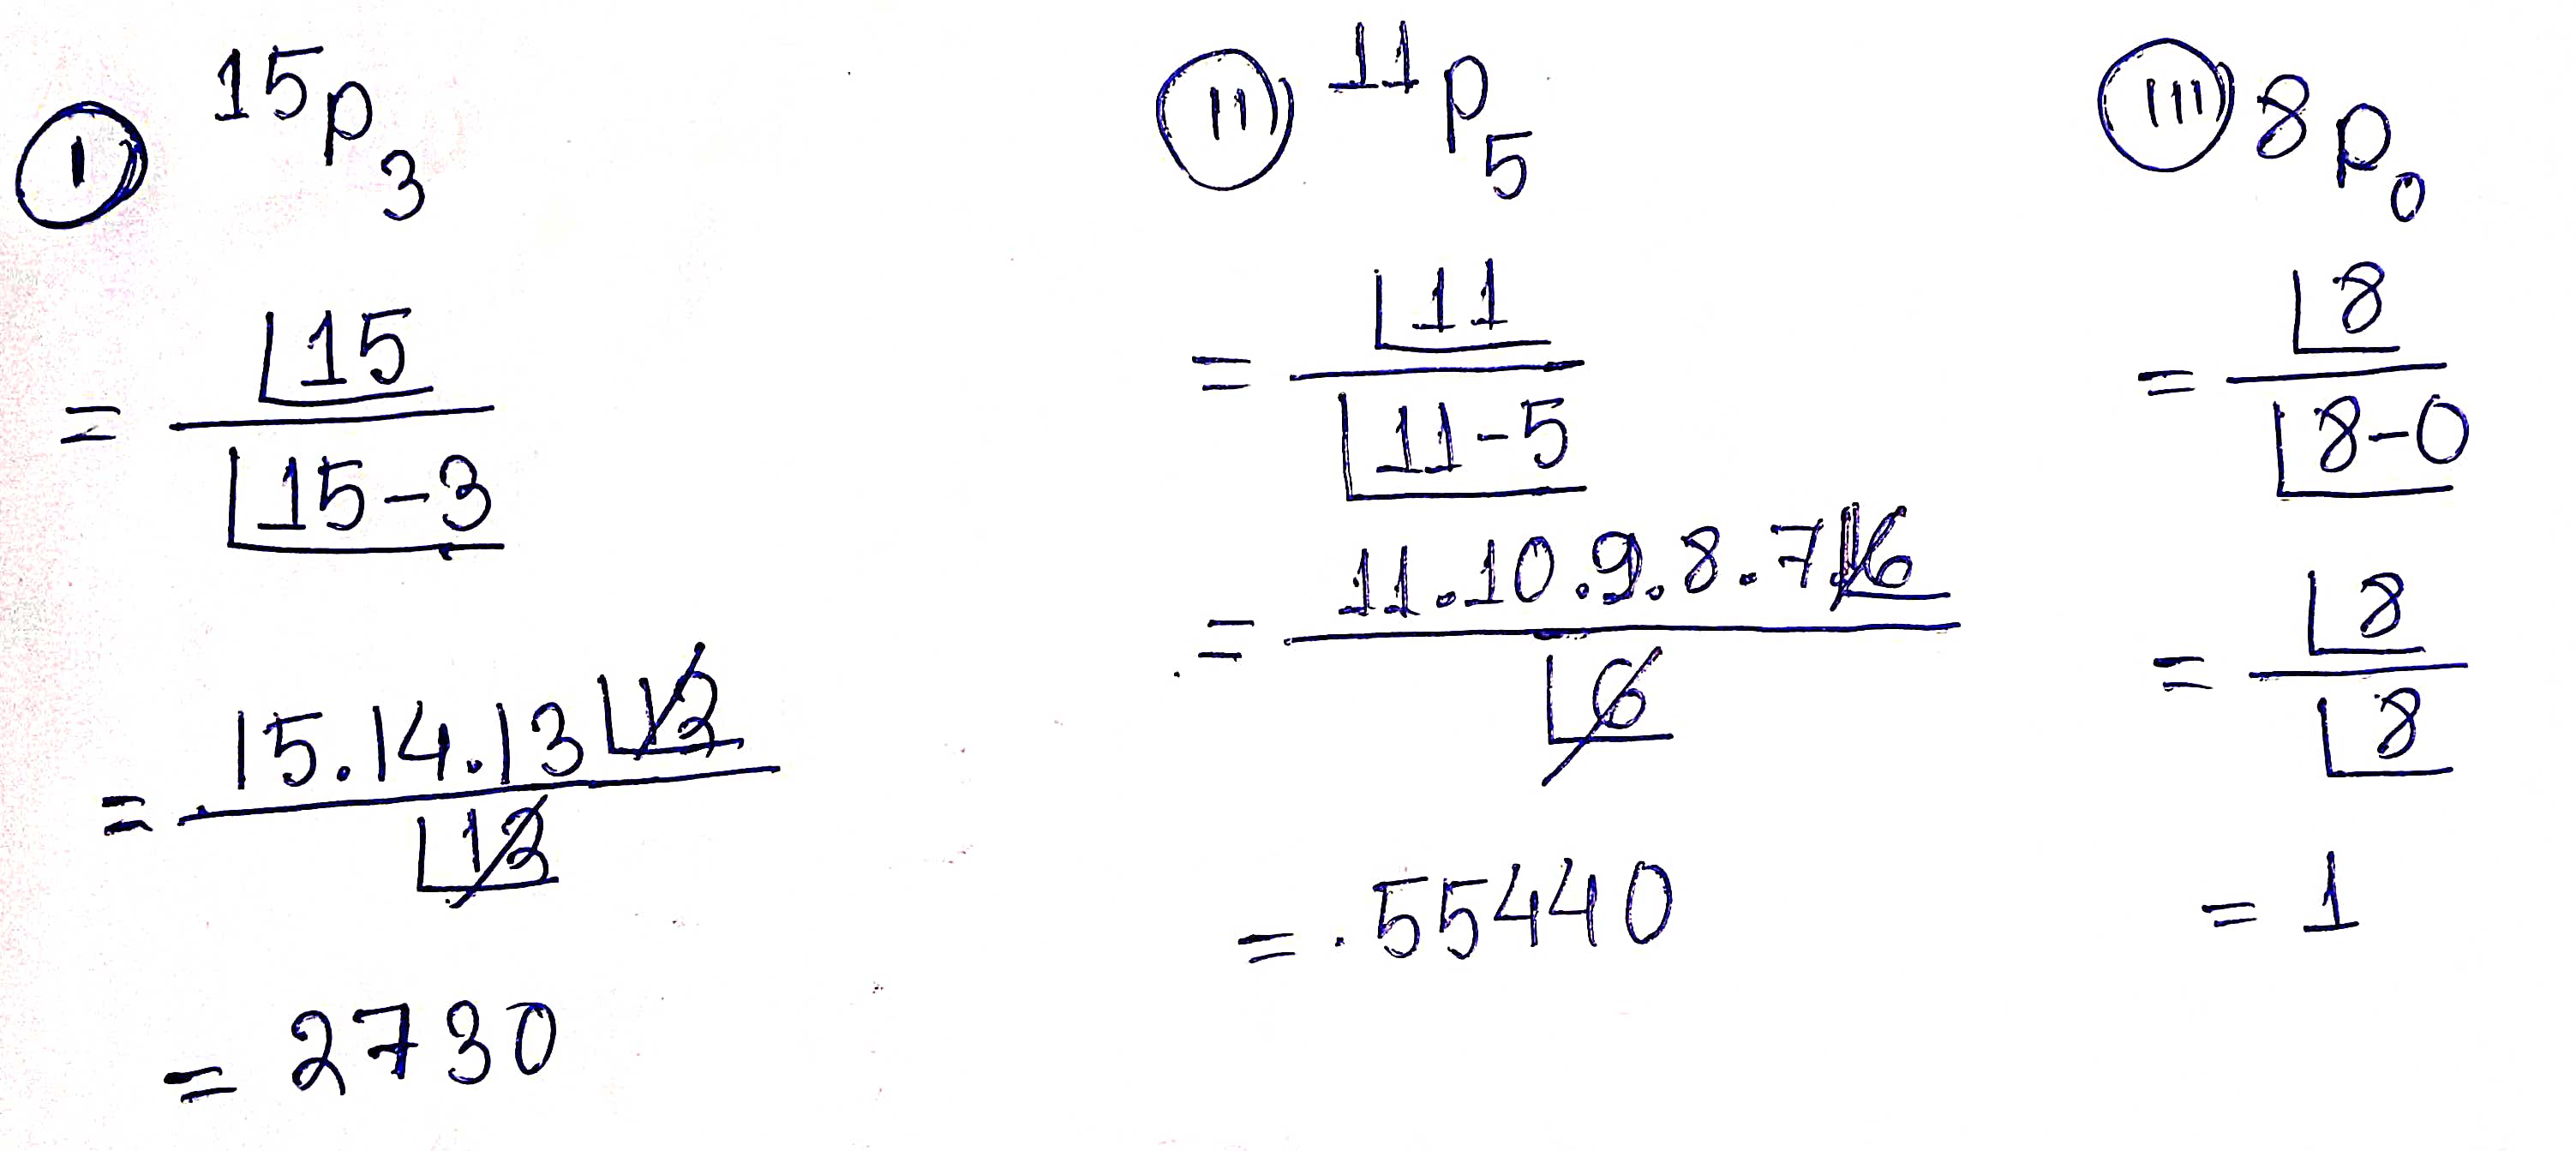 (I) ¹⁵P₃
= ⌊15 / ⌊15-3
= 15.14.13 ⌊12 / ⌊12
= 2730
(II) ¹¹P₅
= ⌊11 / ⌊11-5
= 11.10.9.8.7.⌊6 / ⌊6
= .55440
(III) ⁸P₀
= ⌊8 / ⌊8-0
= ⌊8 / ⌊8
= 1